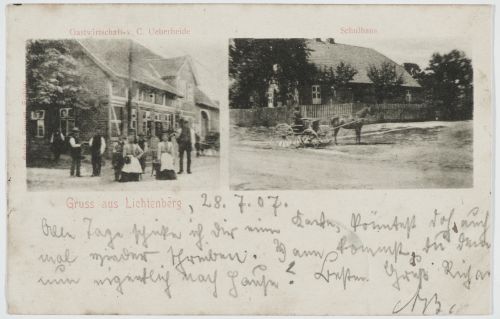 Gastwirtschaft v. C. Ueberheide
Schulhaus
Gruss aus Lichtenberg, 28.7.07.
Alle Tage schicke ich dir eine Karte, könntest doch auch
mal wieder schreiben. Wann kommst du denn
nun eigentlich nach Hause? Besten Gruß Richard